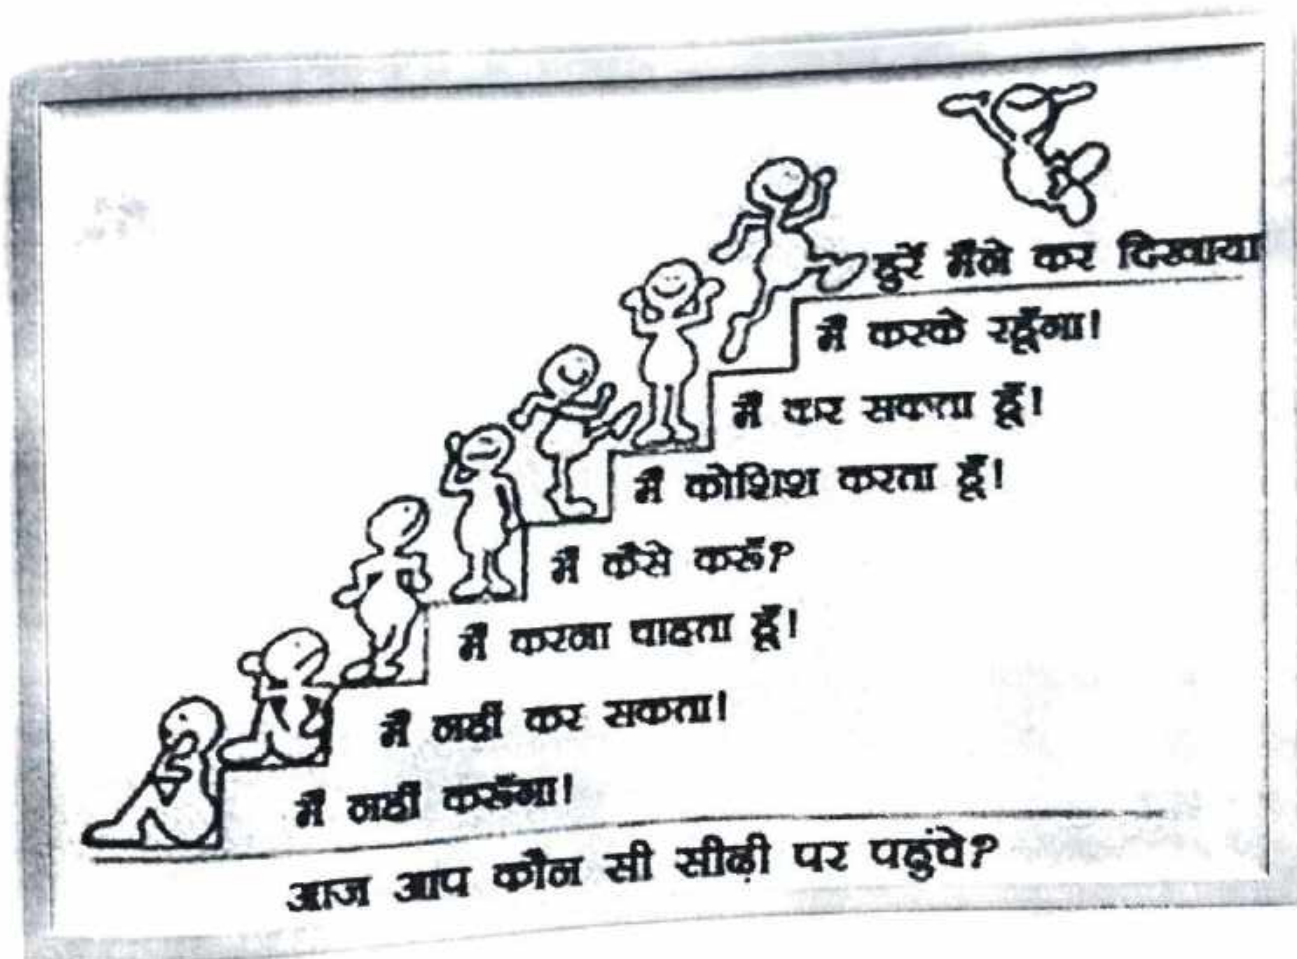 हुर्रे मैंने कर दिखाया
मैं करके रहूँगा!
मैं कर सकता हूँ!
मैं कोशिश करता हूँ!
मैं कैसे करूँ?
मैं करना चाहता हूँ!
मैं नहीं कर सकता!
मैं नहीं करूँगा!
आज आप कौन सी सीढ़ी पर पहुंचे?